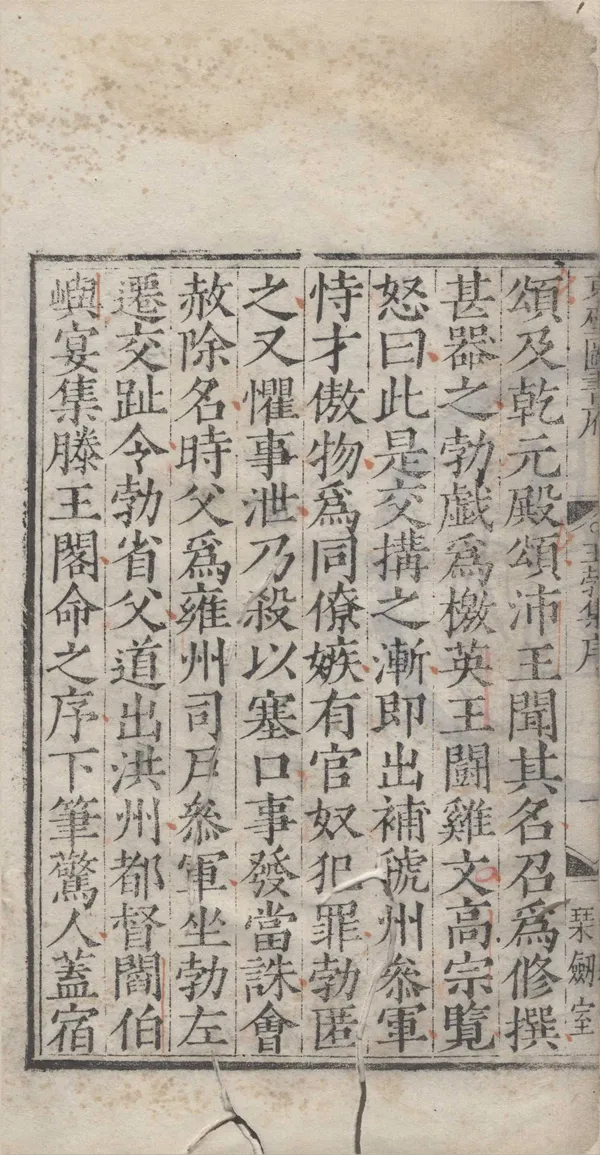 王勃集序
一
琹劒室
頌及乾元殿頌沛王聞其名召爲修撰
甚器之勃戲爲檄英王鬪雞文高宗覽
怒曰此是交搆之漸即出補虢州叅軍
恃才傲物爲同僚嫉有官奴犯罪勃匿
之又懼事泄乃殺以塞口事發當誅會
赦除名時父爲雍州司戶叅軍坐勃左
遷交趾令勃省父道出洪州都督閻伯
嶼宴集滕王閣命之序下筆驚人蓋宿